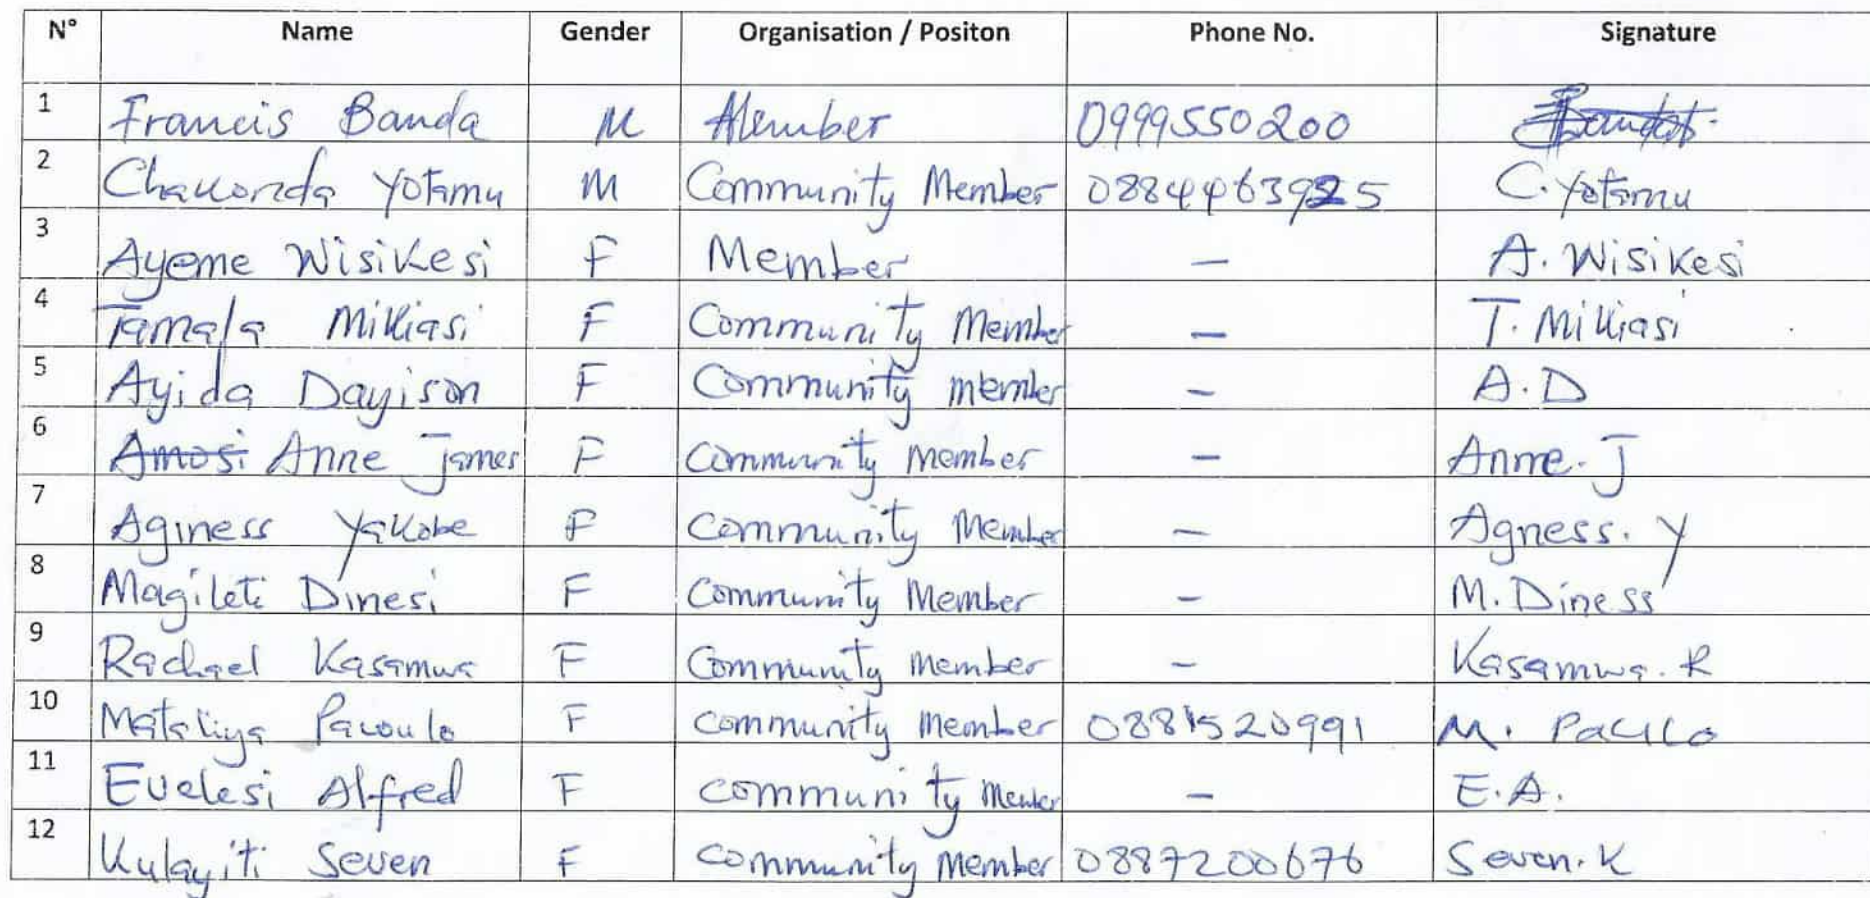 N° Name Gender Organisation / Positon Phone No. Signature
1 Francis Banda M Member 0999550200 Banda
2 Chakonda Yotamu M Community Member 0884463925 C. Yotamu
3 Ayeme Wisikesi F Member - A. Wisikesi
4 Tamala Milliasi F Community Member - T. Milliasi
5 Ayida Dayison F Community member - A.D
6 Amosi Anne James F Community member - Anne. J
7 Aginess Yakobe F Community Member - Agness. Y
8 Magileti Dinesi F Community Member - M. Diness
9 Rachael Kasamwa F Community member - Kasamwa. R
10 Mataliya F community member 0881520991 M.
11 Evelesi Alfred F community member - E.A.
12 Kulayiti Seven F community member 0887200676 Seven. K